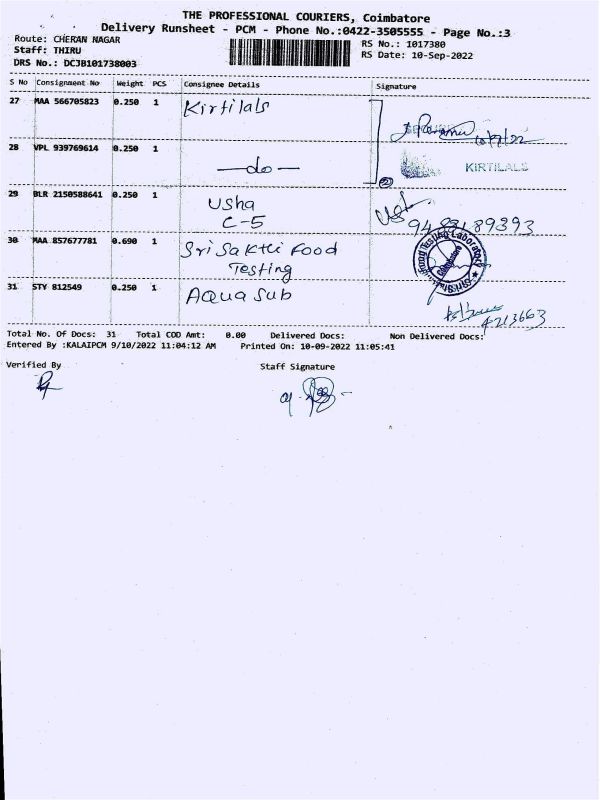 THE PROFESSIONAL COURIERS, Coimbatore
Delivery Runsheet - PCM - Phone No.:0422-3505555 - Page No.:3
Route: CHERAN NAGAR
RS No.: 1017380
Staff: THIRU
RS Date: 10-Sep-2022
DRS No.: DCJB101738003
S No Consignment No Weight PCS Consignee Details Signature
27 MAA 566705823 0.250 1 Kirtilals
10/9/22
28 VPL 939769614 0.250 1 —do—
KIRTILALS
2
29 BLR 2150588641 0.250 1 Usha
C-5
30 MAA 857677781 0.690 1 Sri Sakthi Food
Testing
Food Testing Laboratory
Coimbatore
31 STY 812549 0.250 1 Aqua Sub
4213663
Total No. Of Docs: 31 Total COD Amt: 0.00 Delivered Docs: Non Delivered Docs:
Entered By :KALAIPCM 9/10/2022 11:04:12 AM Printed On: 10-09-2022 11:05:41
Verified By Staff Signature